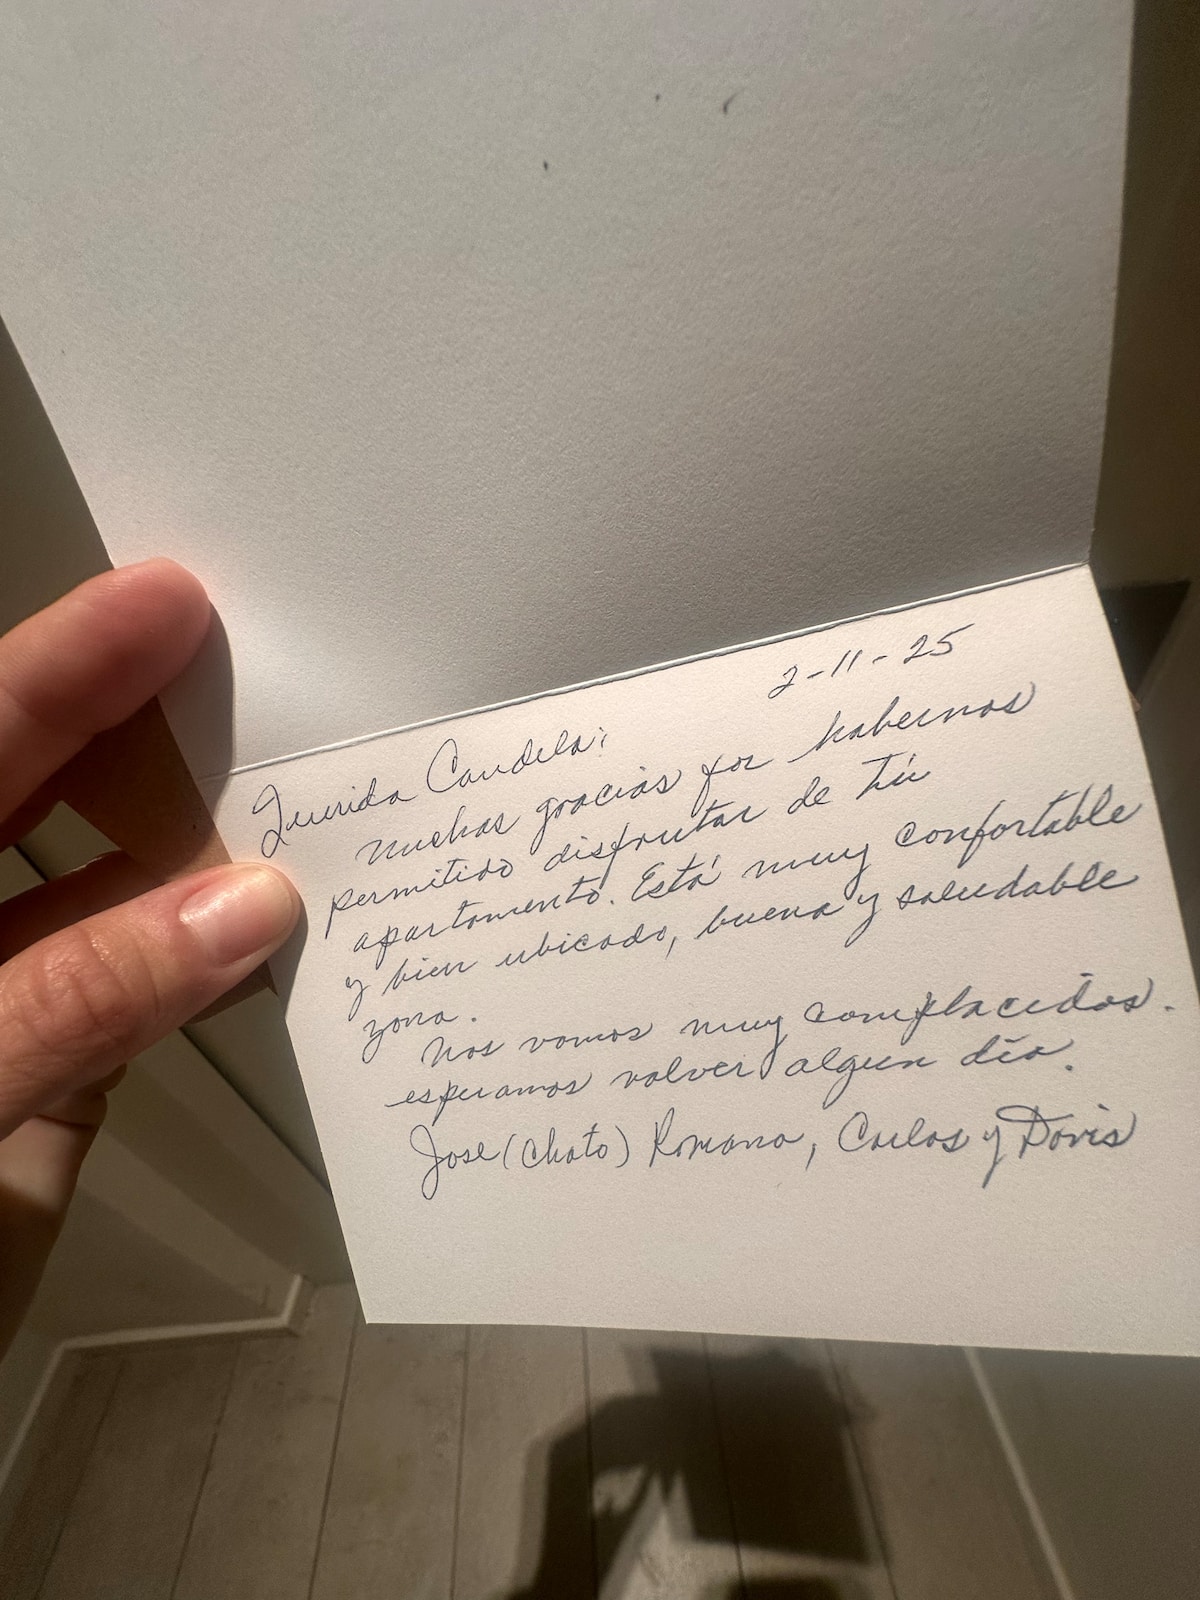 2-11-25
Querida Candela:
Muchas gracias por habernos
permitido disfrutar de tú
apartamento. Está muy confortable
y bien ubicado, buena y saludable
zona.
Nos vamos muy complacidos.
esperamos volver algun día.
Jose (Chato) Romano, Carlos y Doris